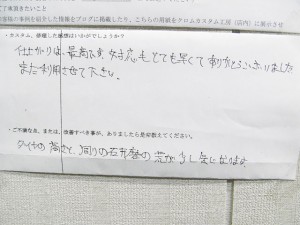 客様の事例を紹介した情報をブログに掲載したり、こちらの用紙をクロムカスタム工房（店内）に展示させ
・カスタム、修理した感想はいかがでしょうか？
仕上がりは最高です。対応もとても早くてありがとうございました
また利用させて下さい。
・ご不満な点、または、改善すべき事が、ありましたら是非教えてください。
の高さと、周りの石 の 荒が少し気になります